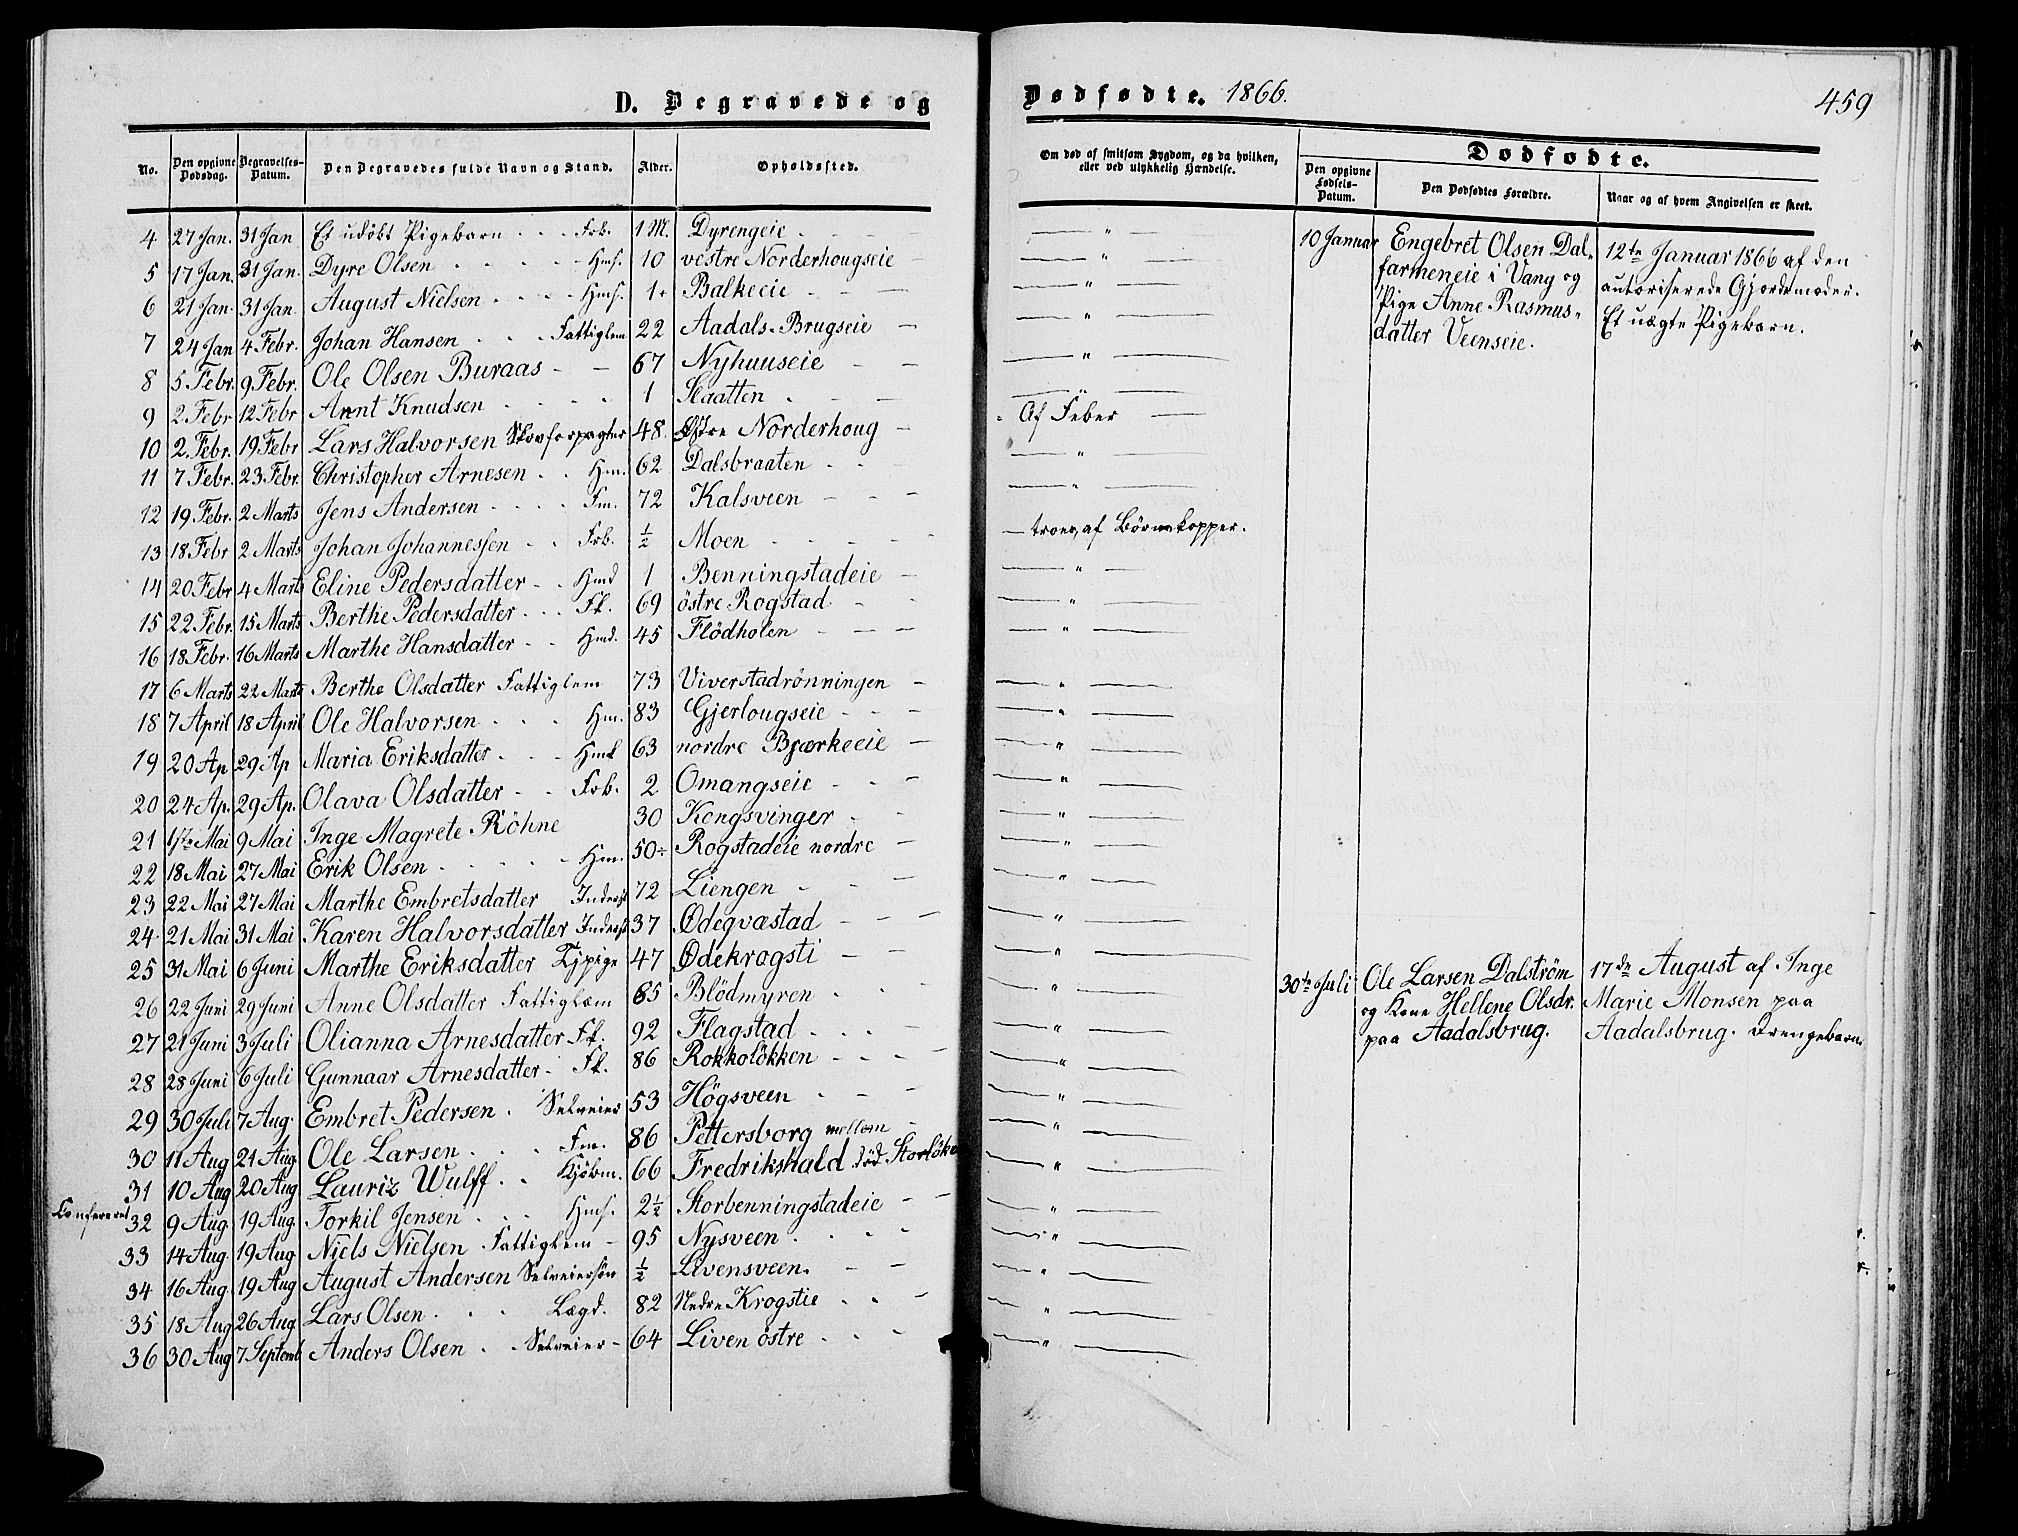 D. Begravede og
No. Den opgivne Dødsdag. Begravelses-Datum. Den Begravedes fulde Navn og Stand. Alder. Opholdssted.
4 27 Jan. 31 Jan Et udöbt Pigebarn Frb. 1 M. Dyrengeie
5 17 Jan. 31 Jan. Dyre Olsen Hmf. 10 vestre Norderhougseie
6 21 Jan. 31 Jan. August Nielsen Hmf. 1 Balkeeie
7 24 Jan 4 Febr. Johan Hansen Fattiglem 22 Aadals-Brugseie
8 5 Febr. 9 Febr. Ole Olsen Buraas 67 Nyhuuseie
9 2. Febr 12 Febr Arnt Knudsen 1 Slaatten
10 2. Febr. 19 Febr Lars Halvorsen Skovforpagter 48. Østre Norderhoug
11 7 Febr. 23 Febr. Christopher Arnesen Hm. 62 Dalsbraaten
12 19 Febr. 2 Marts Jens Andersen Fm. 72 Kalsveen
13 18 Febr 2 Marts Johan Johannessen Frb. ½ Moen
14 20 Febr 4 Marts Eline Pedersdatter Hmd 1 Benningstadeie
15 22 Febr. 15 Marts Berthe Pedersdatter Fk. 69 östre Rogstad
16 18 Febr. 16 Marts Marthe Hansdatter Hmd. 45 Flödholen
17 6 Marts 22 Marts Berthe Olsdatter Fattiglem 73 Viverstadrönningen
18 7 April 18 April Ole Halvorsen Hm. 83 Gjerlougseie
19 20 Ap 29 Ap Maria Eriksdatter Hmk 63 nordre Bjærkeeie
20 24 Ap. 29 Ap. Olava Olsdatter Frb. 2 Omangseie
21 1ste Mai 9 Mai Inge Magrete Röhne 30 Kongsvinger
22 18 Mai 27 Mai Erik Olsen Hm. 50 Rogstadeie nordre
23 22 Mai 27 Mai Marthe Embretsdatter Inderst 72 Liengen
24 21 Mai 31 Mai Karen Halvorsdatter Inderst 37 Ødegvæstad
25 31 Mai 6 Juni Marthe Eriksdatter Tjpige 47 Ødekrogsti
26 22 Juni 29 Juni Anne Olsdatter Fattiglem 85 Blödmyren
27 21 Juni 3 Juli Olianna Arnesdatter Fk. 92 Flagstad
28 28 Juni 6 Juli Gunnaar Arnesdatter Fk. 86 Rokkolökken
29 30 Juli 7 Aug. Embret Pedersen Selveier 53 Högsveen
30 11 Aug 21 Aug. Ole Larsen Fm. 86 Pettersborg mellem
31 10 Aug 20 Aug Lauriz Wulff Kjöbm. 66 Fredrikshald död Storlöken
Confereret 32 9 Aug. 19 Aug Torkil Jensen Hmf. 2½ Storbenningstadeie
33 14 Aug. 19 Aug. Niels Nielsen Fattiglem 95 Nysveen
34 16 Aug. 19 Aug August Andersen Selveiersön ½ Livensveen
35 18 Aug 26 Aug Lars Olsen Lægd. 82 Nedre Krogstie
36 30 Aug 7 Septemb Anders Olsen Selveier 64 Liven östre
Dødfødte. 1866. 459
Om død af smitsom Sygdom, og da hvilken, eller ved ulykkelig Hændelse.
Dødfødte.
Den opgivne Fødsels-Datum. Den Dødfødtes Forældre. Naar og af hvem Angivelsen er skeet.
Af Feber
troer, af Börnekopper.
10 Januar Engebret Olsen Dal-
farmeneie i Vang og
Pige Anne Rasmus-
datter Veenseie.
12te Januar 1866 af den
autoriserede Gjordemoder.
Et uægte Pigebarn.
30te Juli Ole Larsen Dalström
og Kone Hellene Olsdr.
paa Aadalsbrug.
17de August af Inge
Marie Monsen paa
Aadalsbrug. Drengebarn.